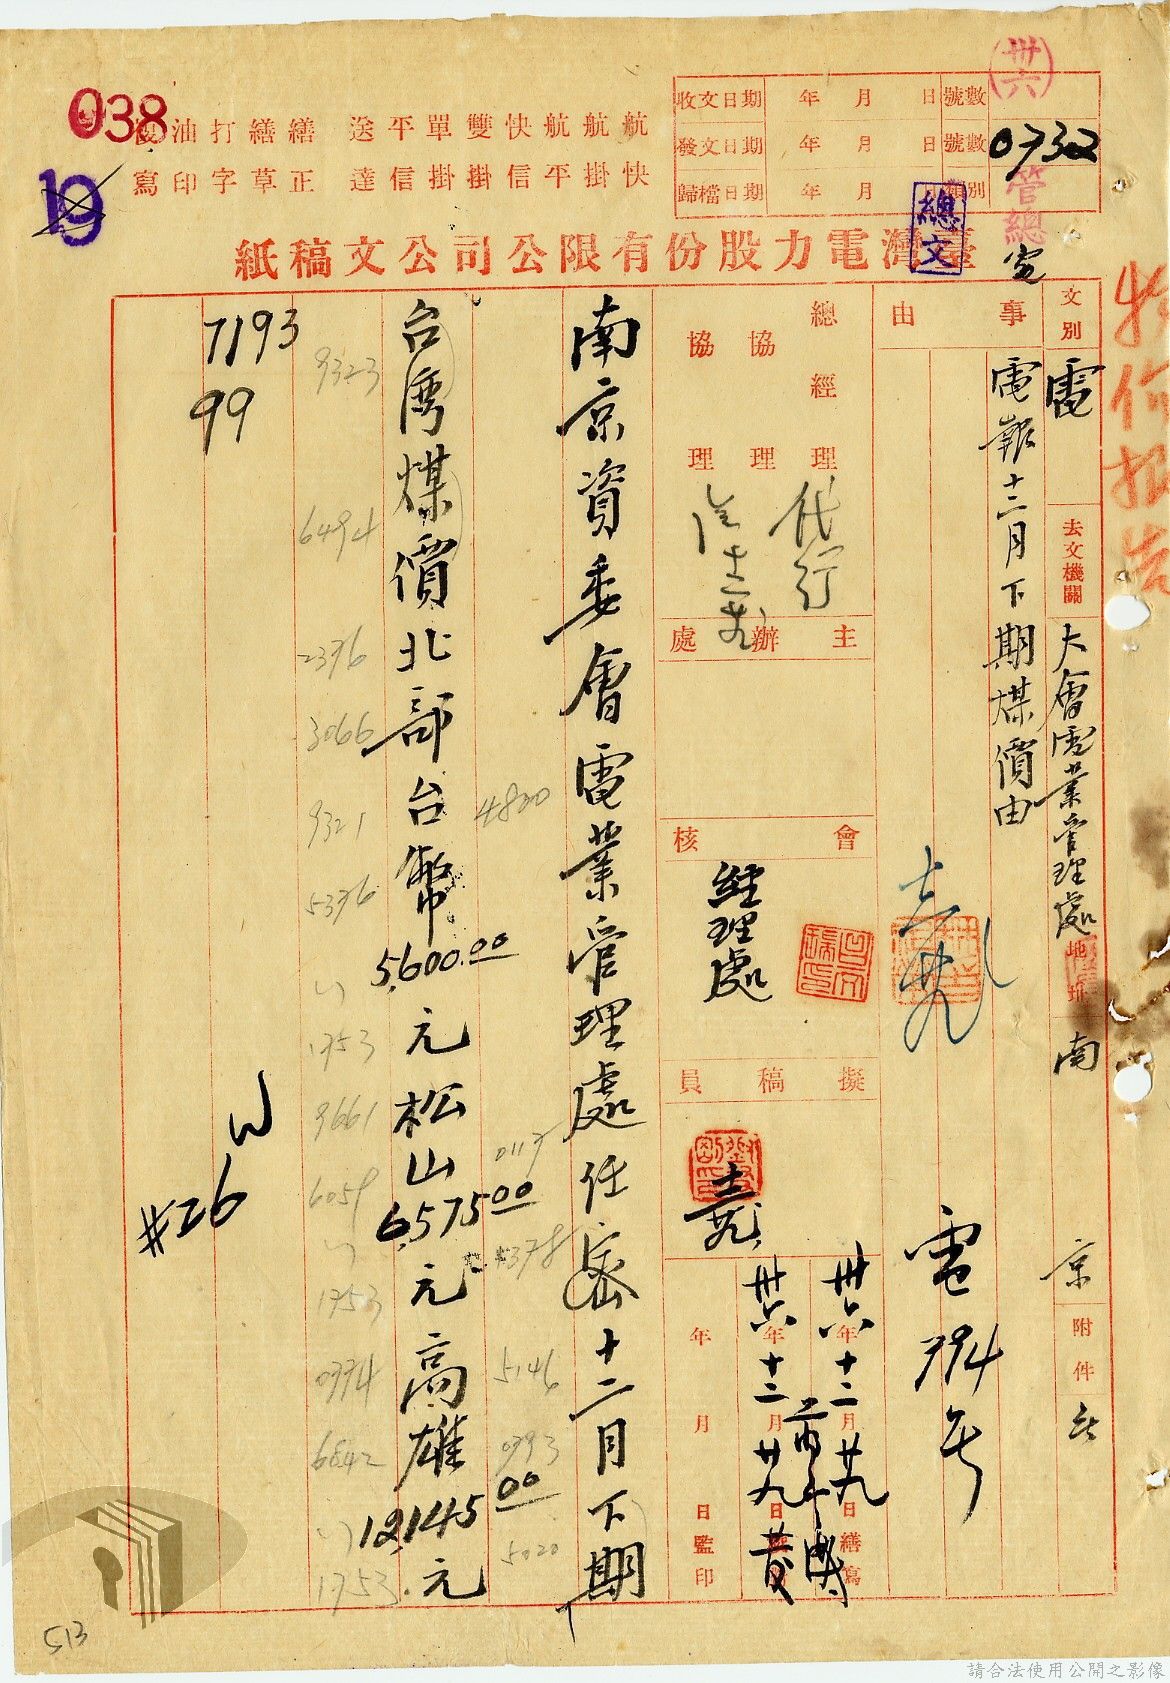 038
19
卅六
繕正
繕草
打字
油印
複寫
航快
航掛
航平
快信
雙掛
單掛
平信
送達
收文日期 年 月 日 號數
發文日期 年 月 日 號數 0732
歸檔日期 年 月 日 類別
管總
總文
臺灣電力股份有限公司公文稿紙
文別 電
去文機關 大會電業管理處
地址 南京
附件 無
事由
電報十二月下期煤價由
電 794 号
總經理 代行
協理
協理
主辦處
會核
經理處
擬稿員
卅六年十二月廿九日繕寫
卅六年十二月廿九日
年 月 日監印
南京資委會電業管理處任密十二月下期
台湾煤價北部台幣5,600.00元松山6,575.00元高雄12,145.00元
4820
0117
5378
5146
0793
5020
9323
6494
2376
3066
9321
5376
1753
9661
6059
1753
0974
6842
1753
7193
99
W
#26
513
請合法使用公開之影像